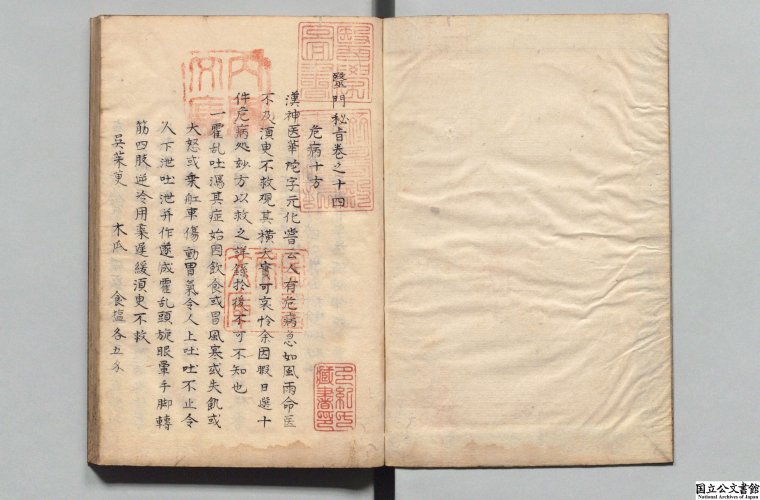 毉門秘旨卷之十四
危病十方
漢神医華陀字元化嘗云人有危病急如風雨命医
不及湏臾不救視其橫夭實可哀怜余因暇日選十
件危病処妙方以救之詳錄於後不可不知也
一霍乱吐瀉其症始因飲食或冒風寒或失飢或
大怒或乗舡車傷動胃氣令人上吐吐不止令
人下泄吐泄并作遂成霍乱頭旋眼暈手脚轉
筋四肢逆冷用藥遲緩湏臾不救
吳茱萸 木瓜 食塩各五分
多紀氏
藏書印
国立公文書館
National Archives of Japan